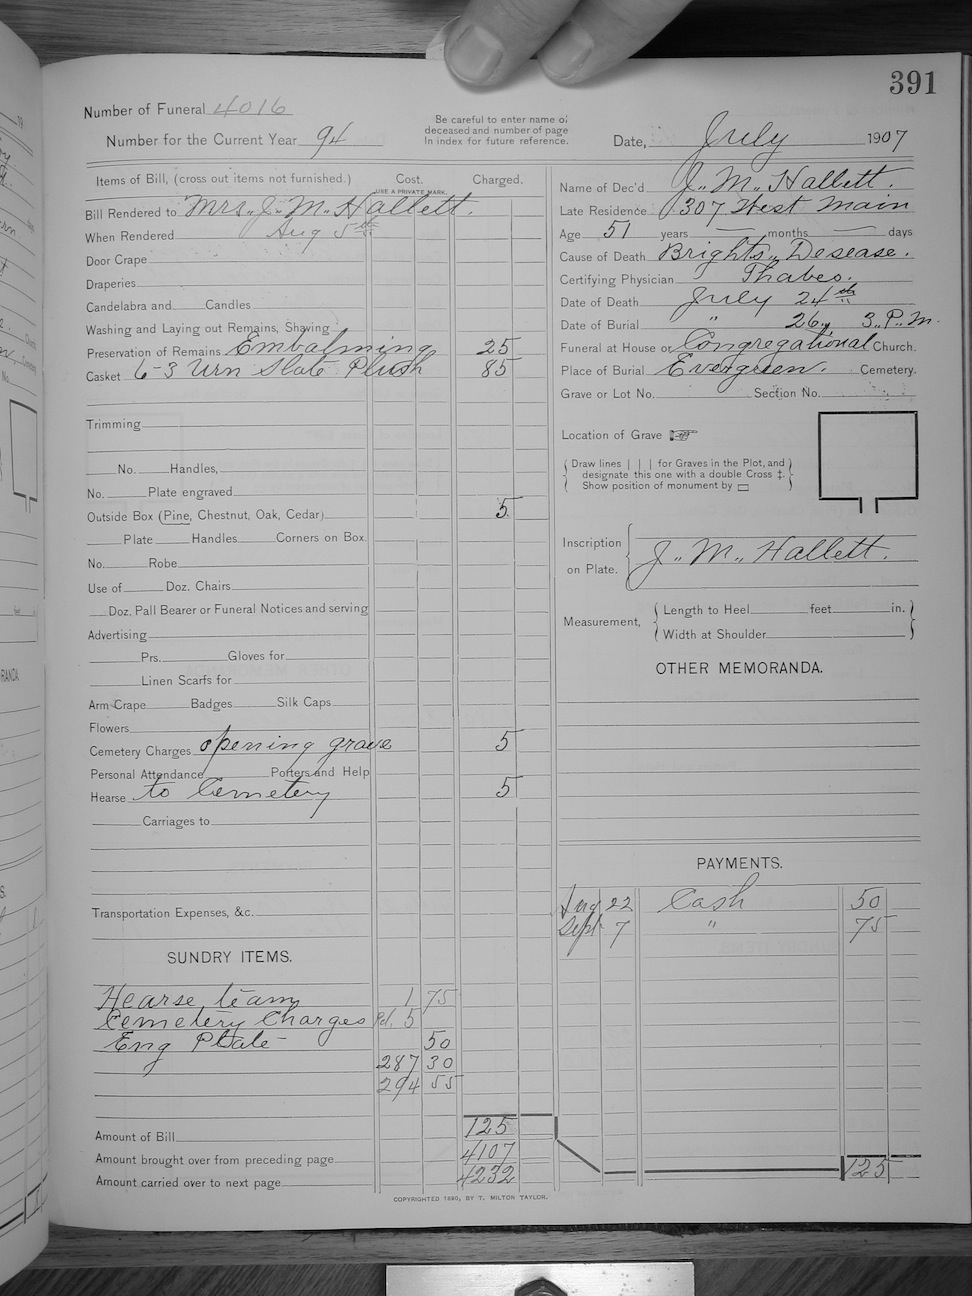 391
Number of Funeral 4016
Number for the Current Year 94
Be careful to enter name of
deceased and number of page
In index for future reference.
Date, July 1907
Items of Bill, (cross out items not furnished.) Cost. Charged.
USE A PRIVATE MARK.
Bill Rendered to Mrs. J. M. Hallett.
When Rendered Aug 5th
Door Crape
Draperies
Candelabra and Candles
Washing and Laying out Remains, Shaving
Preservation of Remains Embalming 25
Casket 6-3 Urn State Plush 85
Trimming
No. Handles,
No. Plate engraved
Outside Box (Pine, Chestnut, Oak, Cedar) 5
Plate Handles Corners on Box.
No. Robe
Use of Doz. Chairs
Doz. Pall Bearer or Funeral Notices and serving
Advertising
Prs. Gloves for
Linen Scarfs for
Arm Crape Badges Silk Caps
Flowers
Cemetery Charges opening grave 5
Personal Attendance Porters and Help
Hearse to Cemetery 5
Carriages to
Transportation Expenses, &c.
SUNDRY ITEMS.
Hearse team 1 75
Cemetery Charges Pd. 5
Eng Plate 50
287 30
294 55
Amount of Bill 125
Amount brought over from preceding page 4107
Amount carried over to next page 4232
Name of Dec'd J. M. Hallett.
Late Residence 307 West Main
Age 51 years months days
Cause of Death Brights Desease.
Certifying Physician Thabes.
Date of Death July 24th
Date of Burial " 26, 3 P. M.
Funeral at House or Congregational Church.
Place of Burial Evergreen. Cemetery.
Grave or Lot No. Section No.
Location of Grave ☞
Draw lines | | | for Graves in the Plot, and
designate this one with a double Cross ‡.
Show position of monument by ▭
Inscription
on Plate. J. M. Hallett.
Measurement, Length to Heel feet in.
Width at Shoulder
OTHER MEMORANDA.
PAYMENTS.
Aug 22 Cash 50
Sept 7 " 75
125
COPYRIGHTED 1890, BY T. MILTON TAYLOR.